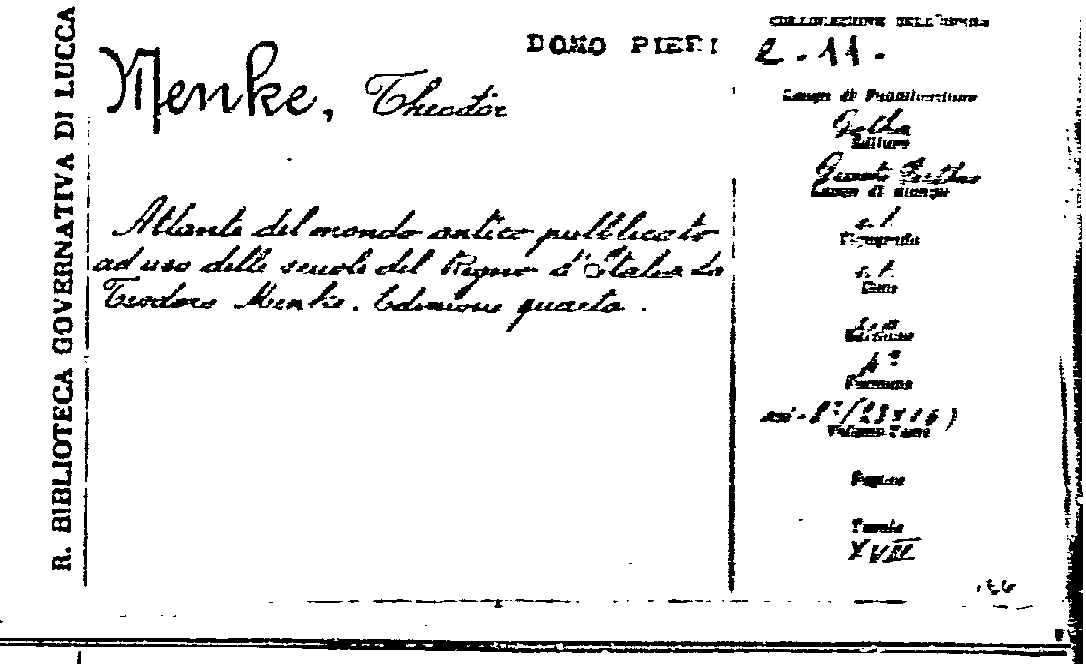 R. BIBLIOTECA GOVERNATIVA DI LUCCA
Menke, Theodor
DONO PIERI
Atlante del mondo antico pubblicato
ad uso delle scuole del Regno d'Italia da
Teodoro Menke. Edizione quarta.
COLLOCAZIONE DELL'OPERA
2.11.
Luogo di Pubblicazione
Gotha
Editore
Giusto Perthes
Luogo di stampa
s.l.
Tipografia
s.t.
Anno
Edizione
4ª
Formato
8°(23x16)
Volume-Tomo
Pagine
Tavole
XVII